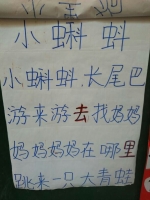 小蝌蚪
小蝌蚪,长尾巴
游来游去找妈妈
妈妈妈妈在哪里
跳来一只大青蛙